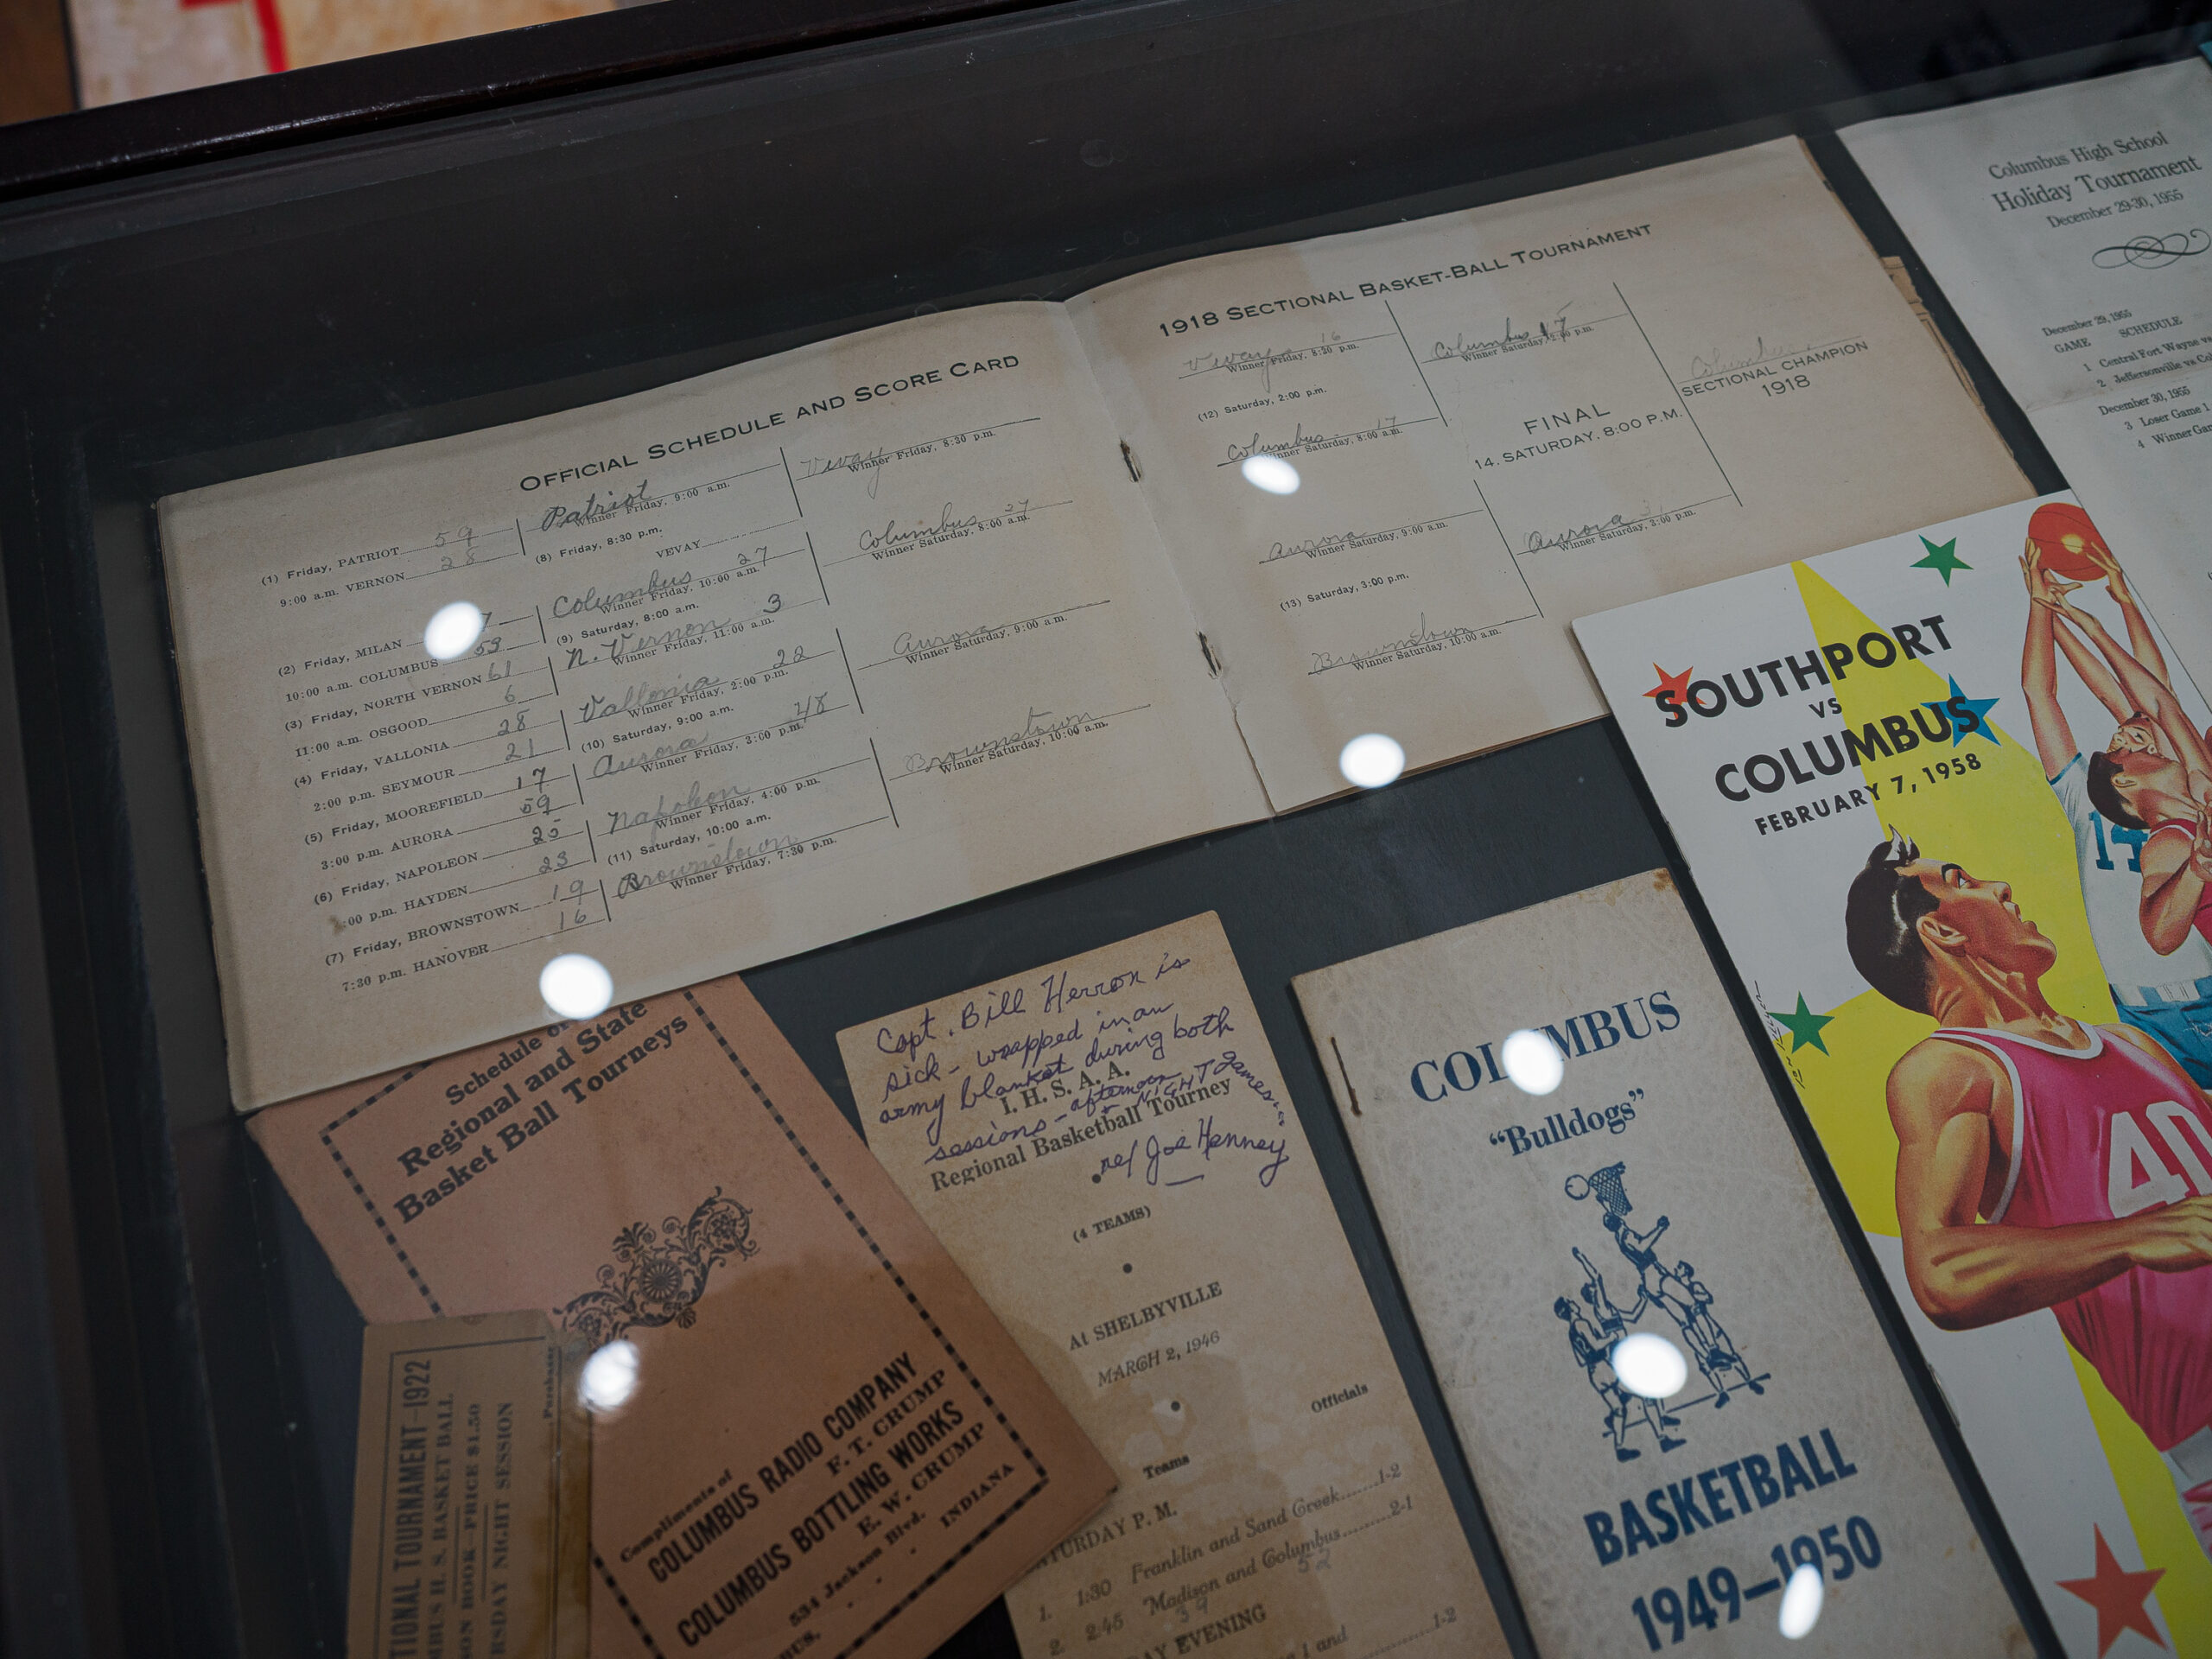 OFFICIAL SCHEDULE AND SCORE CARD
(1) Friday, PATRIOT 59
9:00 a.m. VERNON 28
Patriot
Winner Friday, 9:00 a.m.
(8) Friday, 8:30 p.m.
VEVAY
Vevay
Winner Friday, 8:30 p.m.
(2) Friday, MILAN 7
10:00 a.m. COLUMBUS 53
Columbus 27
Winner Friday, 10:00 a.m.
(9) Saturday, 8:00 a.m.
N. Vernon 3
Winner Friday, 11:00 a.m.
Columbus 27
Winner Saturday, 8:00 a.m.
(3) Friday, NORTH VERNON 61
11:00 a.m. OSGOOD 6
(4) Friday, VALLONIA 28
2:00 p.m. SEYMOUR 21
Vallonia 22
Winner Friday, 2:00 p.m.
(10) Saturday, 9:00 a.m.
Aurora 48
Winner Friday, 3:00 p.m.
Aurora
Winner Saturday, 9:00 a.m.
(5) Friday, MOOREFIELD 17
3:00 p.m. AURORA 59
(6) Friday, NAPOLEON 25
:00 p.m. HAYDEN 23
Napoleon
Winner Friday, 4:00 p.m.
(11) Saturday, 10:00 a.m.
Brownstown
Winner Friday, 7:30 p.m.
Brownstown
Winner Saturday, 10:00 a.m.
(7) Friday, BROWNSTOWN 19
7:30 p.m. HANOVER 16
1918 SECTIONAL BASKET-BALL TOURNAMENT
Vevay 16
Winner Friday, 8:30 p.m.
(12) Saturday, 2:00 p.m.
Columbus 17
Winner Saturday, 8:00 a.m.
Columbus 17
Winner Saturday, 2:00 p.m.
Aurora
Winner Saturday, 9:00 a.m.
(13) Saturday, 3:00 p.m.
Brownstown
Winner Saturday, 10:00 a.m.
FINAL
14. SATURDAY. 8:00 P.M.
Aurora
Winner Saturday, 2:00 p.m.
Columbus
SECTIONAL CHAMPION
1918
Columbus High School
Holiday Tournament
December 29-30, 1955
December 29, 1955
SCHEDULE
GAME
1 Central Fort Wayne vs
2 Jeffersonville vs Col
December 30, 1955
3 Loser Game 1
4 Winner Gam
SOUTHPORT
VS
COLUMBUS
FEBRUARY 7, 1958
14
40
Schedule of
Regional and State
Basket Ball Tourneys
Compliments of
COLUMBUS RADIO COMPANY
F. T. CRUMP
COLUMBUS BOTTLING WORKS
E. W. CRUMP
534 Jackson Blvd.
BUS, INDIANA
TIONAL TOURNAMENT—1922
MBUS H. S. BASKET BALL
SON BOOK—PRICE $1.50
RSDAY NIGHT SESSION
Purchaser
Capt. Bill Herron is
sick - wrapped in an
army blanket during both
sessions - afternoon + NIGHT games...
ref Joe Henney
I. H. S. A. A.
Regional Basketball Tourney
(4 TEAMS)
At SHELBYVILLE
MARCH 2, 1946
Officials
Teams
ATURDAY P. M.
1. 1:30 Franklin and Sand Creek 1-2
2. 2:45 Madison and Columbus 2-1
39 52
DAY EVENING
1 and 1-2
COLUMBUS
"Bulldogs"
BASKETBALL
1949—1950